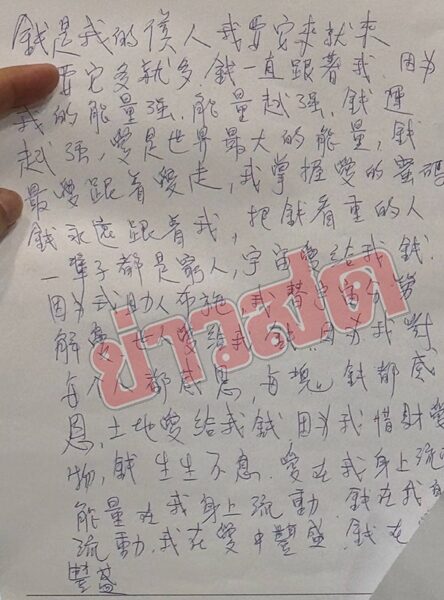 錢是我的僕人我要它來就來
要它多就多,錢一直跟著我,因为
我的能量强,能量越强,錢運
越强,愛是世界最大的能量,錢
最愛跟着愛走,我掌握愛的密码
錢永遠跟着我,把錢看重的人
一輩子都是窮人,宇宙愛給我錢.
因为我助人布施,我替宇宙分勞
解憂,人愛給我錢,因为我對
每个人都感恩,每塊錢都感
恩,土地愛给我錢因为我惜財愛
物,錢生生不息.愛在我身上流
能量在我身上流動.錢在我身
流動.我在愛中豐盛.錢在
豐盛
ข่าวสด